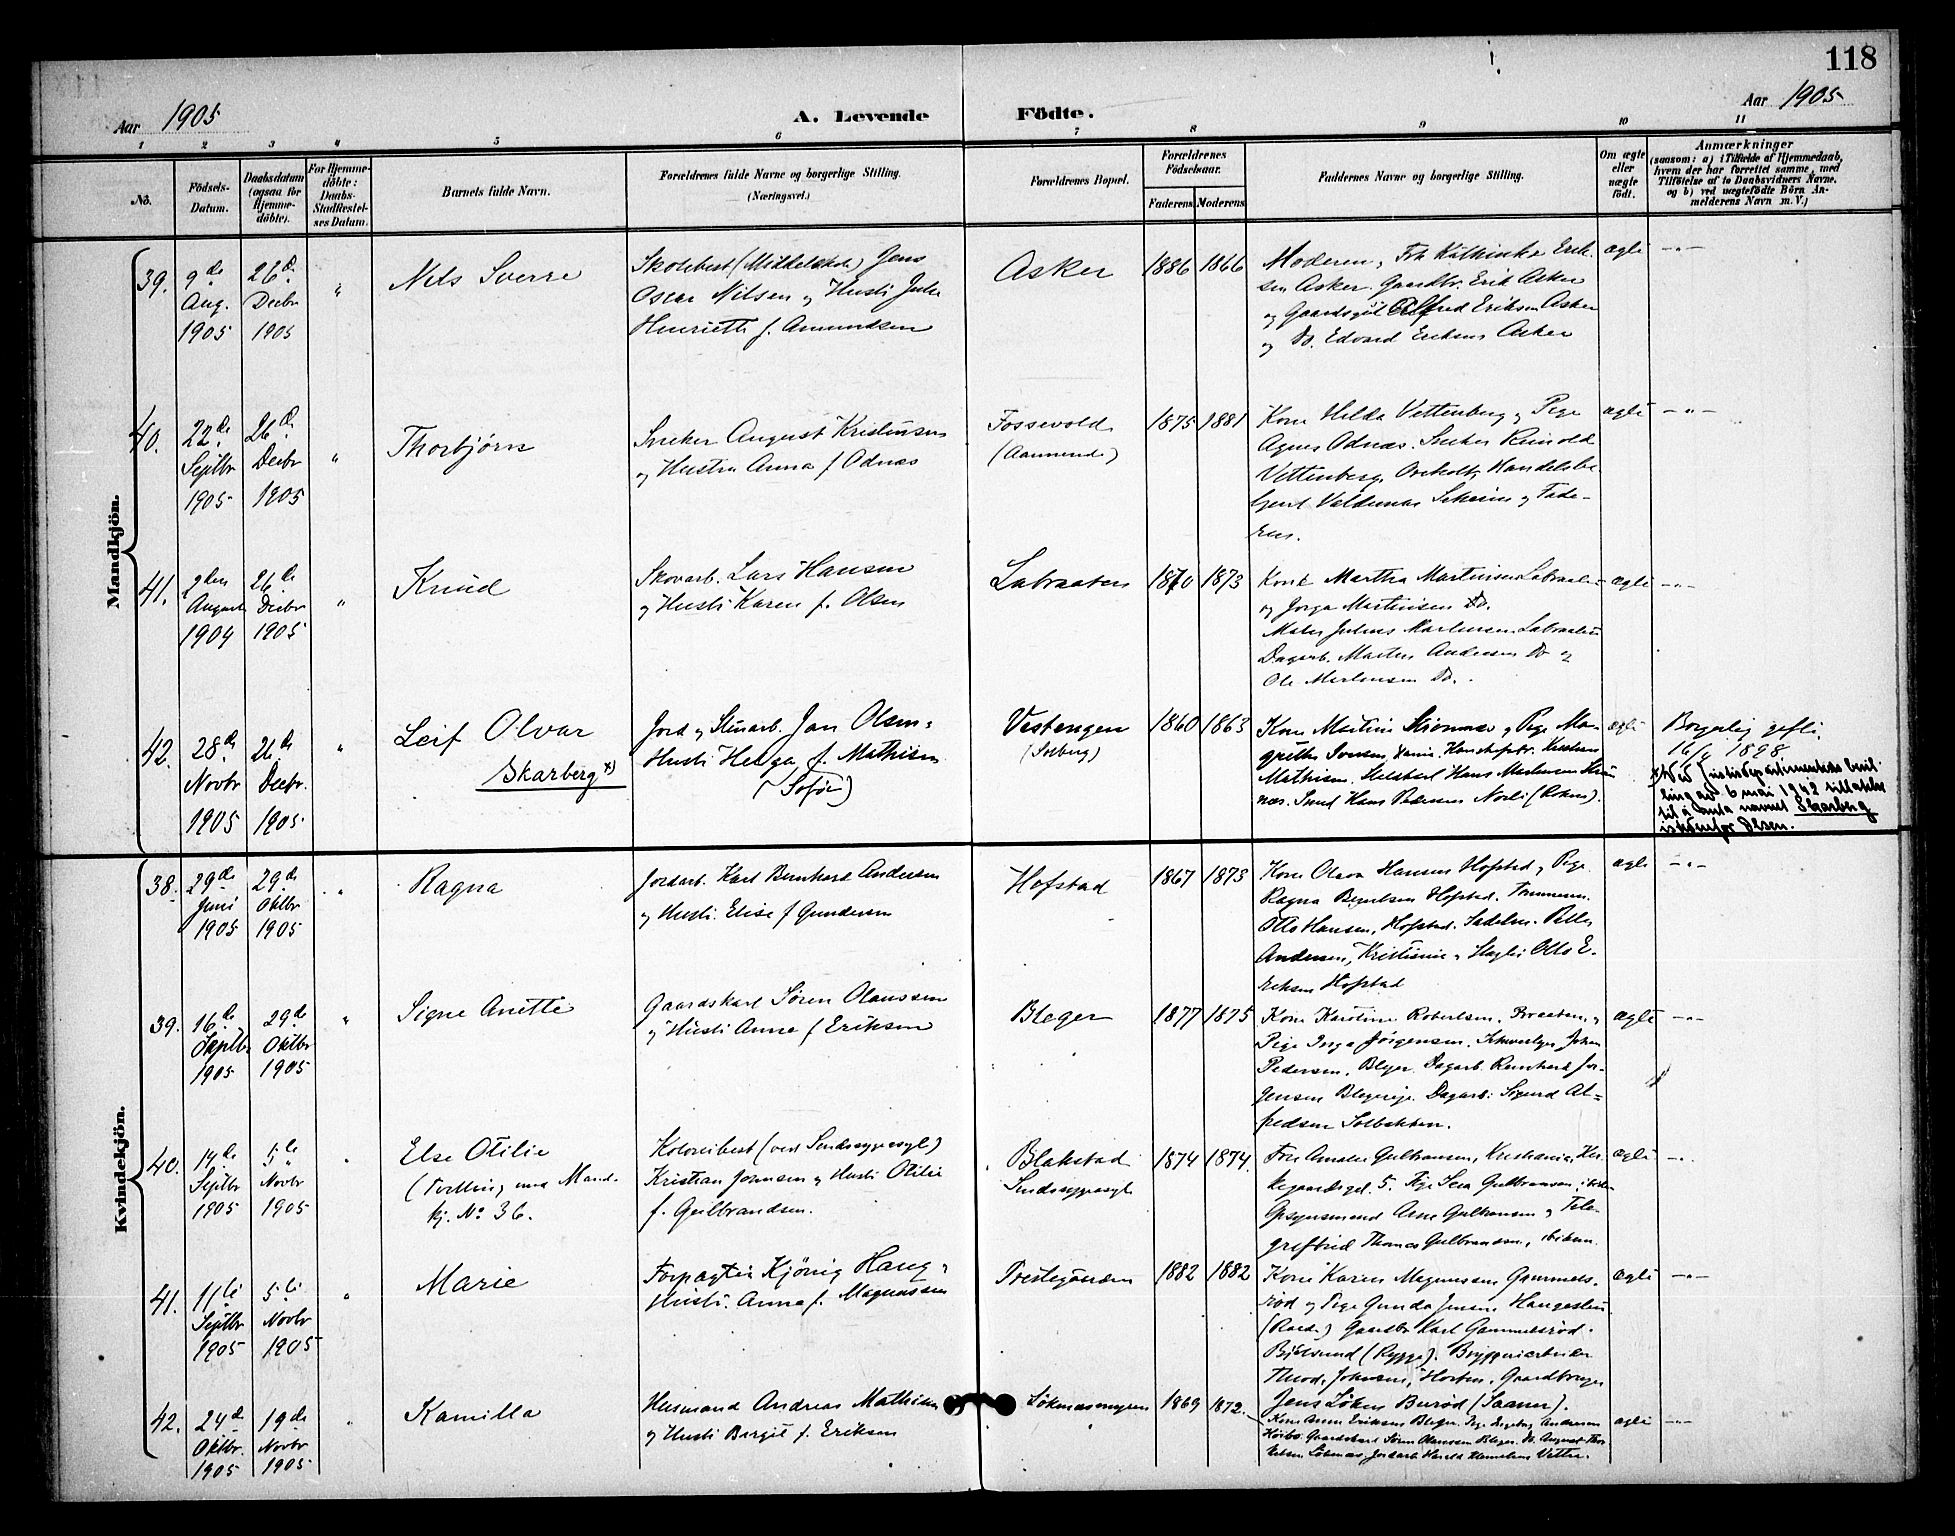 118
Aar 1905
A. Levende Födte.
Aar 1905
1 2 3 4 5 6 7 8 9 10 11
No.
Födsels-Datum.
Daabsdatum (ogsaa for Hjemme-döbte).
For Hjemme-döbte: Daabs-Stadfæstel-ses Datum.
Barnets fulde Navn.
Forældrenes fulde Navne og borgerlige Stilling.
(Næringsvei.)
Forældrenes Bopæl.
Forældrenes Födselsaar.
Faderens Moderens
Faddernes Navne og borgerlige Stilling.
Om ægte eller uægte födt.
Anmærkninger
(saasom: a) i Tilfælde af Hjemmedaab, hvem der har forrettet samme, med Tilföielse af to Daabsvidners Navne, og b) ved uægtefödte Börn An-melderens Navn m. V.)
Mandkjön.
39. 9de Aug. 1905
26d. Decbr 1905
"
Nils Sverre
Skolebest (Middelskole) Jens
Oscar Nilsen og Hustr Julie
Henriette f. Amundsen
Asker
1886 1866
Moderen, Frk Kathinka Erik-
sen Asker. Gaardbr. Erik Asker
og Gaardsgut Alfred Eriksen Asker
og Do. Edvard Eriksen Asker
ægte
-"-
40. 22de Septbr 1905
26d. Decbr 1905
"
Thorbjørn
Sneker August Kristensen
og Hustru Anna f Odnæs
Fossevold
1875 1881
Kone Helda Vettenberg og Pige
Agnes Odnæs. Sneker Reinold
Vettenberg, Handelsbe-
tjent Valdemar og Fade-
ren.
ægte
-"-
41. 2den August 1904
26de Decbr 1905
"
Knud
Skovarb. Lars Hansen
og Hustr Karen f. Olsen
Labraaten
1870 1873
Kone Martha Martinsen Labraaten
og Jorga Martinsen Do.
Maler Julius Martinsen Labraaten
Dagarb. Marten Andersen Do og
Ole Martinsen Do.
ægte
-"-
42. 28de Novbr 1905
26de Decbr. 1905
"
Leif Olvar
Skarberg x)
Jord og Stenarb. Jan Olsen
Hustr Helga f. Mathisen
Vestengen
(Solberg)
1860 1863
Kone Martine og Pige Mar-
grethe Iversen,
Mathisen. Hans Martinsen
Smed Hans Pedersen
ægte
Borgerlig gift.
1898
x) Ved Justisdepartementets bevil-
ling av 6 mai 1942 tillatelse
til å anta navnet Skarberg
istedenfor Olsen.
Kvindekjön.
38. 29de Juni 1905
29de Oktbr 1905
"
Ragna
Jordarb. Karl Bernhard Andersen
og Hustr. Elise f Gundersen
Hofstad
1867 1873
Kone Olava Hansen Hofstad og Pige
Ragna Hofstad.
Otto Hansen, Hofstad.
Andersen, Otto E-
riksen Hofstad
ægte
-"-
39. 16de Septbr 1905
29de Oktbr 1905
"
Signe Anette
Gaardskarl Søren Olaussen
og Hustr Anna f Eriksen
Bleger
1877 1875
Kone Karoline Robertsen, Braaten, og
Pige Inga Jørgensen. Johan
Pedersen, Bleger. Dagarb. Reinhard Jør-
gensen Dagarb: Sigurd Al-
fredsen Solbakken.
ægte
-"-
40. 14de Septbr 1905
5te Novbr 1905
Else Otilie
(Tvilling med Mand-
kj. No 36.
(ved Sindssygeasyl)
Kristian Johnsen og Hustr Otilie
f. Gulbrandsen.
Blakstad
Sindssygeasyl
1874 1874.
Fru Amalie Gulbransen, Kristiania,
5. Pige Gulbransen, ibiden
Arne Gulbransen og Tele-
grafbud Thomas Gulbransen, ibidem.
ægte
41. 11te Septbr 1905
5te Novbr 1905
"
Marie
Forpagter Kjönig Haug og
Hustr. Anna f. Magnussen
Prestegaarden
1882 1882
Kone Karen Magnussen Gammels-
rød og Pige Gunda Jensen Haugesten
(Raade) Gaardbr Karl Gammelsrød.
(Rygge). Bryggeriarbeider
Thod. Johnsen, Horten, Gaardbruger
Jens Løken Burød (Saaner).
ægte
-"-
42. 24de Oktbr. 1905
19de Novbr. 1905
Kamilla
Husmand Andreas Mathisen
og Hustr Birgit f. Eriksen
Løkenæsmyren
1869 1872.
Kone Anna Eriksen Bleger. Pige Ingeborg Andersen
Gaardskarl Søren Olaussen Bleger. Do. August Thor-
Løkenæs, Jordarb Harald Vettre.
ægte
-"-